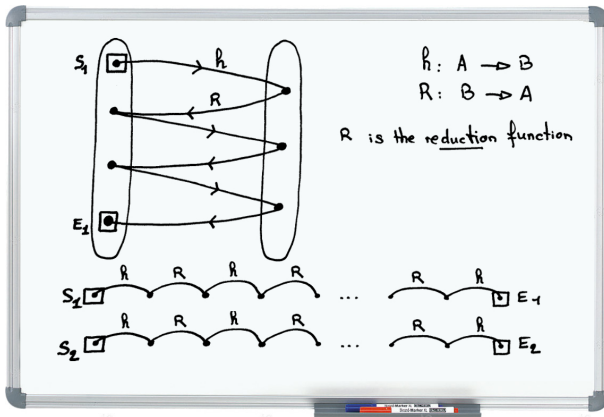 S1 h
R
E1
h: A → B
R: B → A
R is the reduction function
S1 h R h R ... R h E1
S2 h R h R ... R h E2